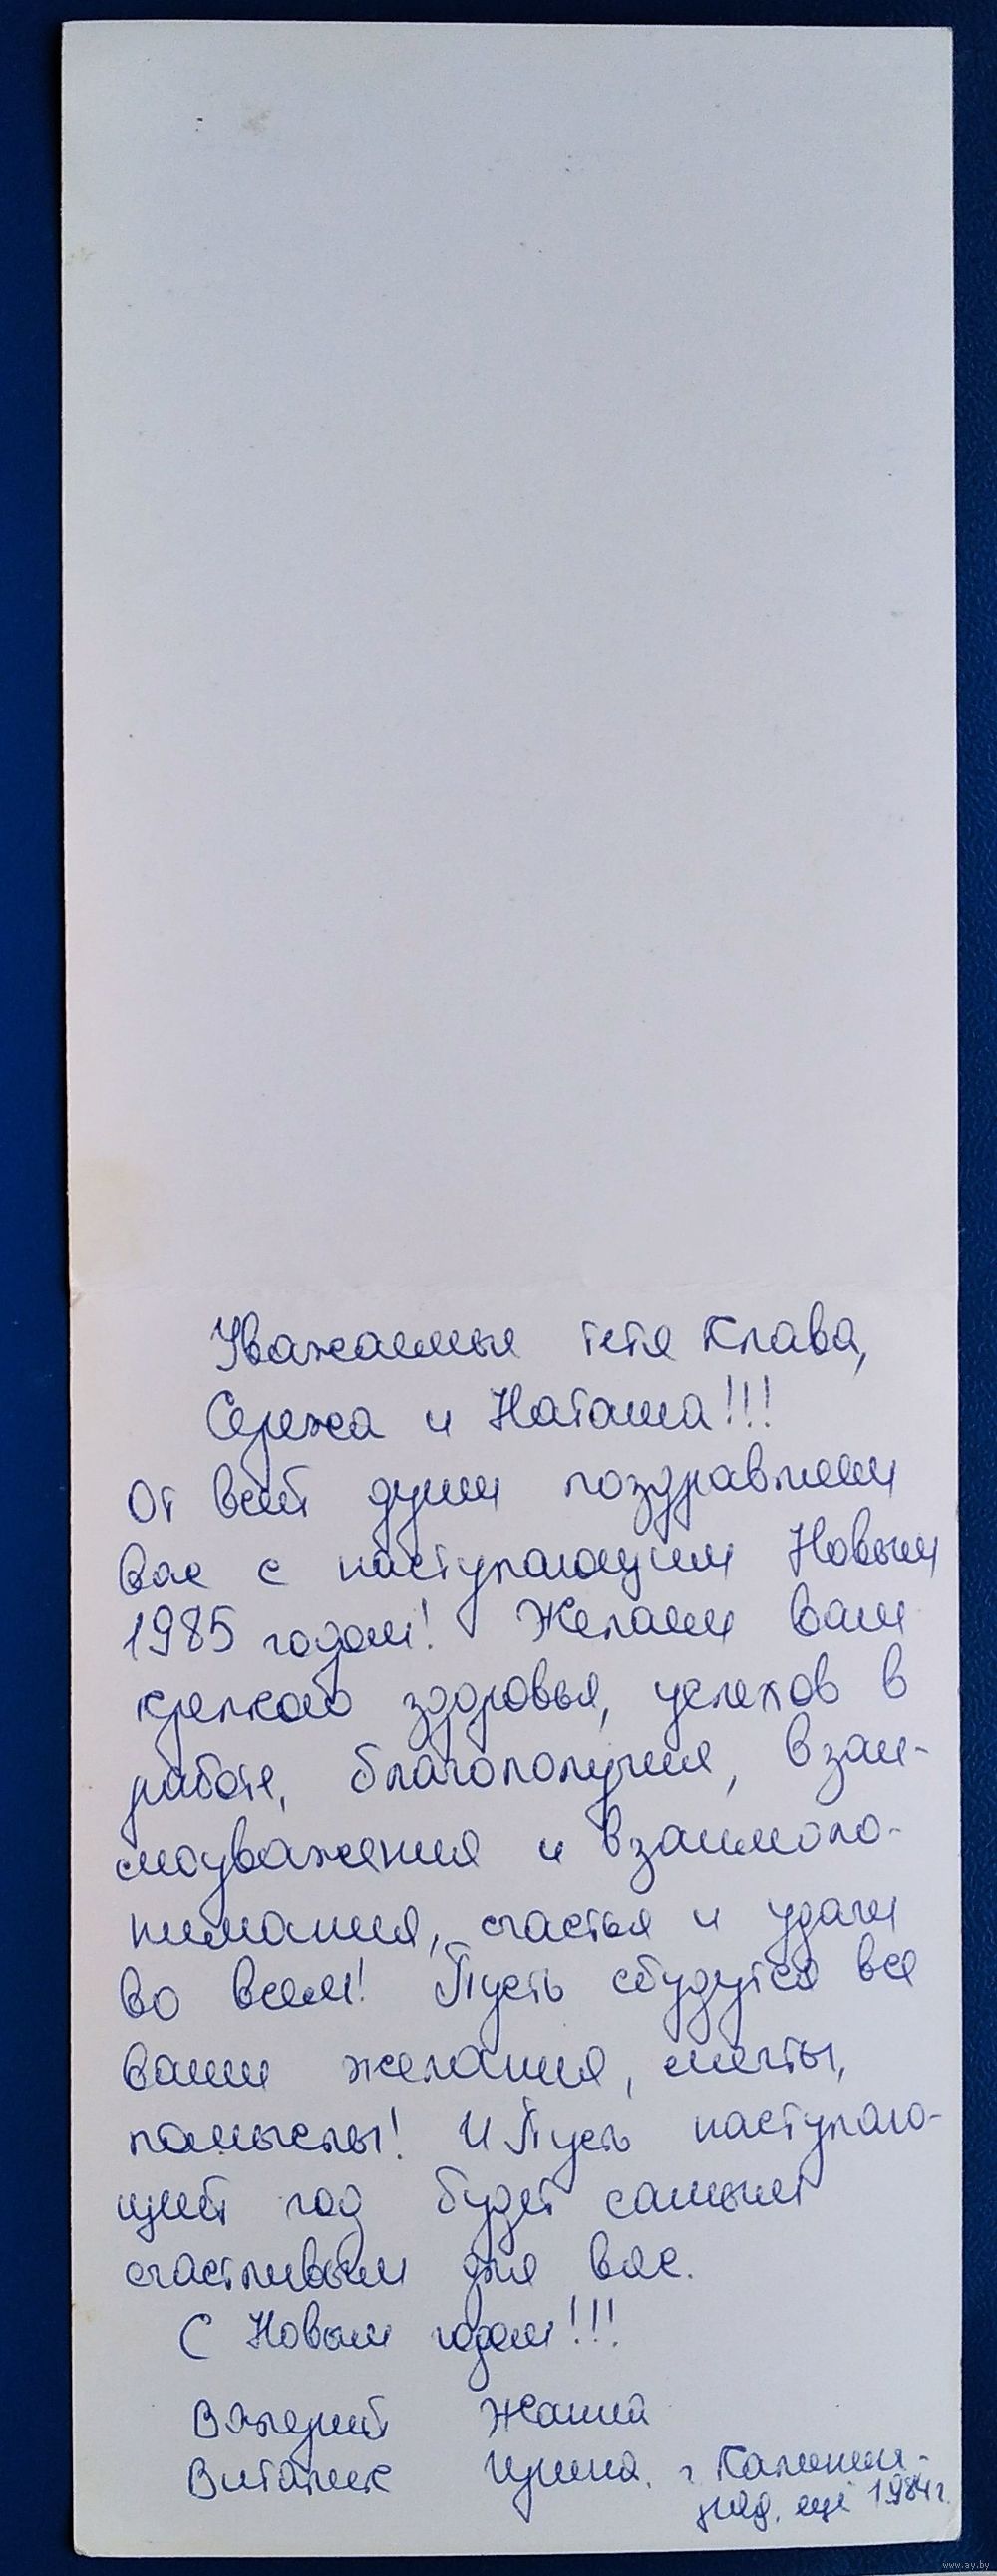 Уважаемые тетя Клава,
Сережа и Наташа!!!
От всей души поздравляем
Вас с наступающим Новым
1985 годом! Желаем Вам
крепкого здоровья, успехов в
работе, благополучия, взаи-
моуважения и взаимопо-
нимания, счастья и удачи
во всем! Пусть сбудутся все
Ваши желания, мечты,
помыслы! И Пусть наступаю-
щий год будет самым
счастливым для вас.
С Новым годом!!!
Валерий Жанна
Виталик Ирина. г. Калинин-
град. ещё 1984 г.
www.ay.by